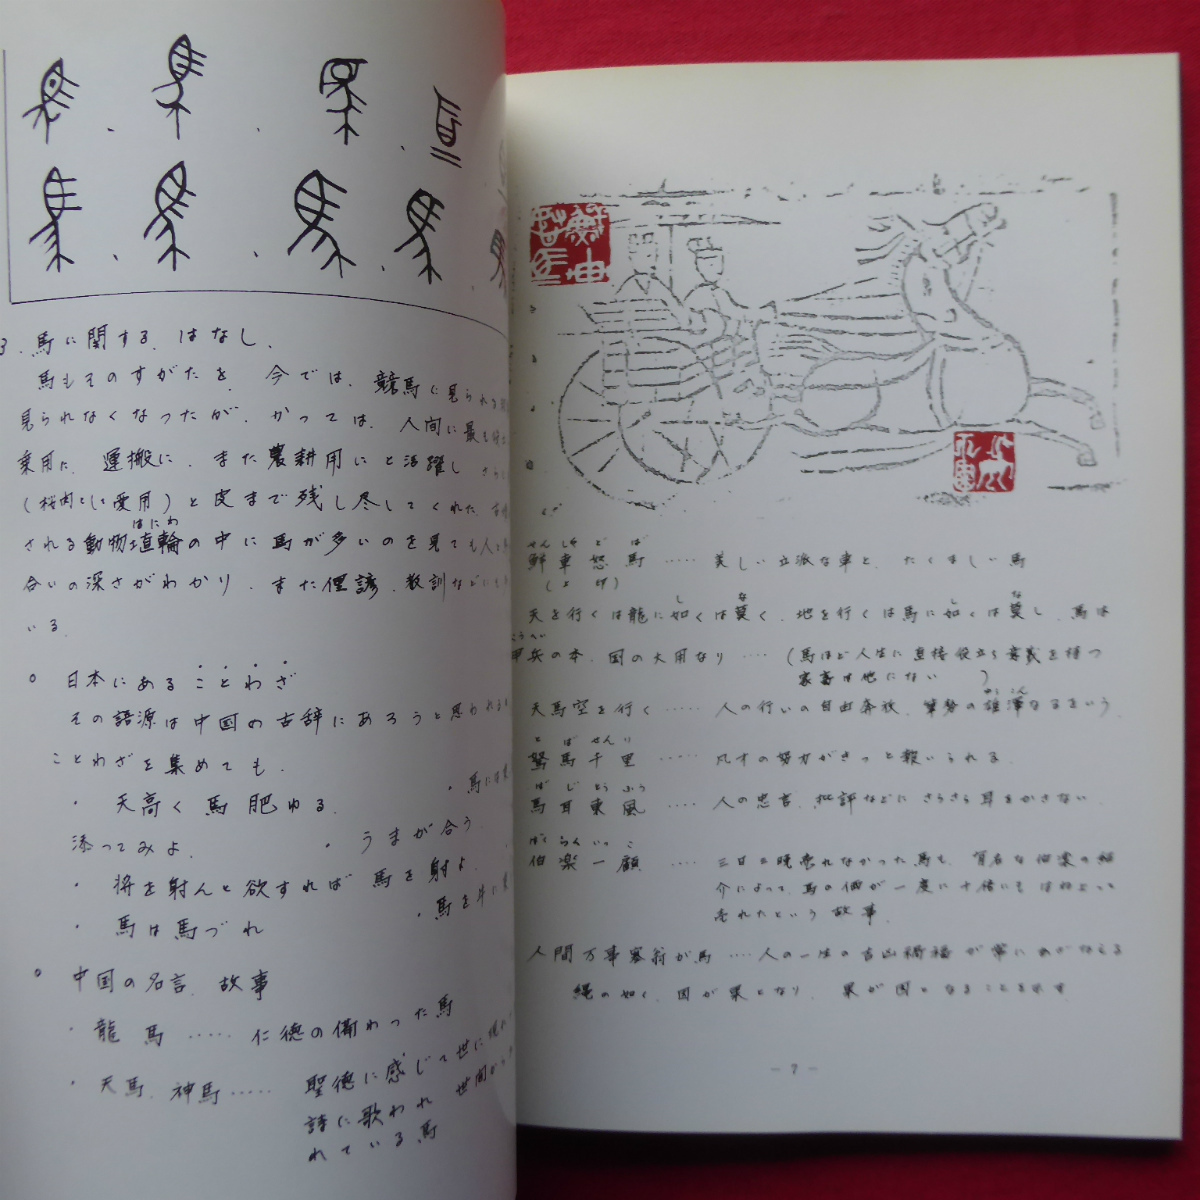 3. 馬に関する はなし.
馬もそのすがたを、今では、競馬に見られる
見られなくなったが、かつては、人間に最も
乗用に、運搬に、また農耕用にと活躍し
(桜肉として愛用)と皮まで残し尽してくれた.
はにわ
される動物埴輪の中に馬が多いのを見ても人と
合いの深さがわかり、また俚諺、教訓などに
いる.
○ 日本にあることわざ
その語源は中国の古辞にあろうと思われる
ことわざを集めても、
・馬には
・天高く馬肥ゆる.
添ってみよ.
・うまが合う.
・将を射んと欲すれば馬を射よ.
・馬は馬づれ
・馬を牛に
○ 中国の名言、故事
・龍馬 ‥‥‥ 仁徳の備わった馬
・天馬、神馬 ‥‥‥ 聖徳に感じて世に現れ
詩に歌われ 世間から
れている馬
せんしゃ どば
鮮車怒馬 ‥‥‥ 美しい立派な車と、たくましい馬
(上印)
し な し な
天を行くは龍に如くは莫く、地を行くは馬に如くは莫し、馬は
甲兵の本、国の大用なり ‥‥ (馬ほど人生に直接役立ち意義を持つ
家畜は他にない )
天馬空を行く ‥‥‥ 人の行いの自由奔放、筆勢の雄渾なるをいう.
どばせんり
駑馬千里 ‥‥‥ 凡才の努力がきっと報いられる.
ばじとうふう
馬耳東風 ‥‥‥ 人の忠言、批評などにさらさら耳をかさない.
はくらくいっこ
伯楽一顧 ‥‥‥ 三日三晩売れなかった馬も、有名な伯楽の紹
介によって、馬の価が一度に十倍にもはねよって
売れたという故事.
人間万事塞翁が馬 ‥‥ 人の一生の吉凶禍福が常にあざなえる
縄の如く、因が果となり、果が因となることを示す
－ 7 －